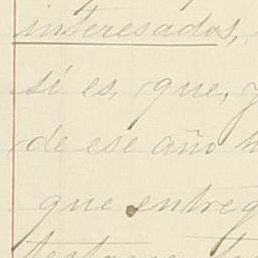 interesados,
sí es, que, y
de ese año h
que entreg